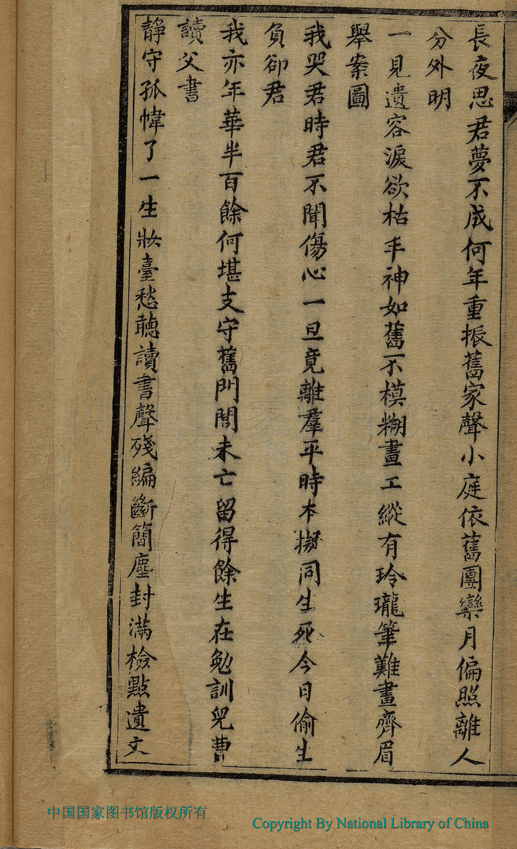 長夜思君夢不成何年重振舊家聲小庭依舊團欒月偏照離人
分外明
一見遺容淚欲枯丰神如舊不模糊畫工縱有玲瓏筆難畫齊眉
舉案圖
我哭君時君不聞傷心一旦竟離羣平時本擬同生死今日偷生
負卻君
我亦年華半百餘何堪支守舊門閭未亡留得餘生在勉訓兒曹
讀父書
靜守孤幃了一生妝臺愁聽讀書聲殘編斷簡塵封滿檢點遺文
中国国家图书馆版权所有
Copyright By National Library of China